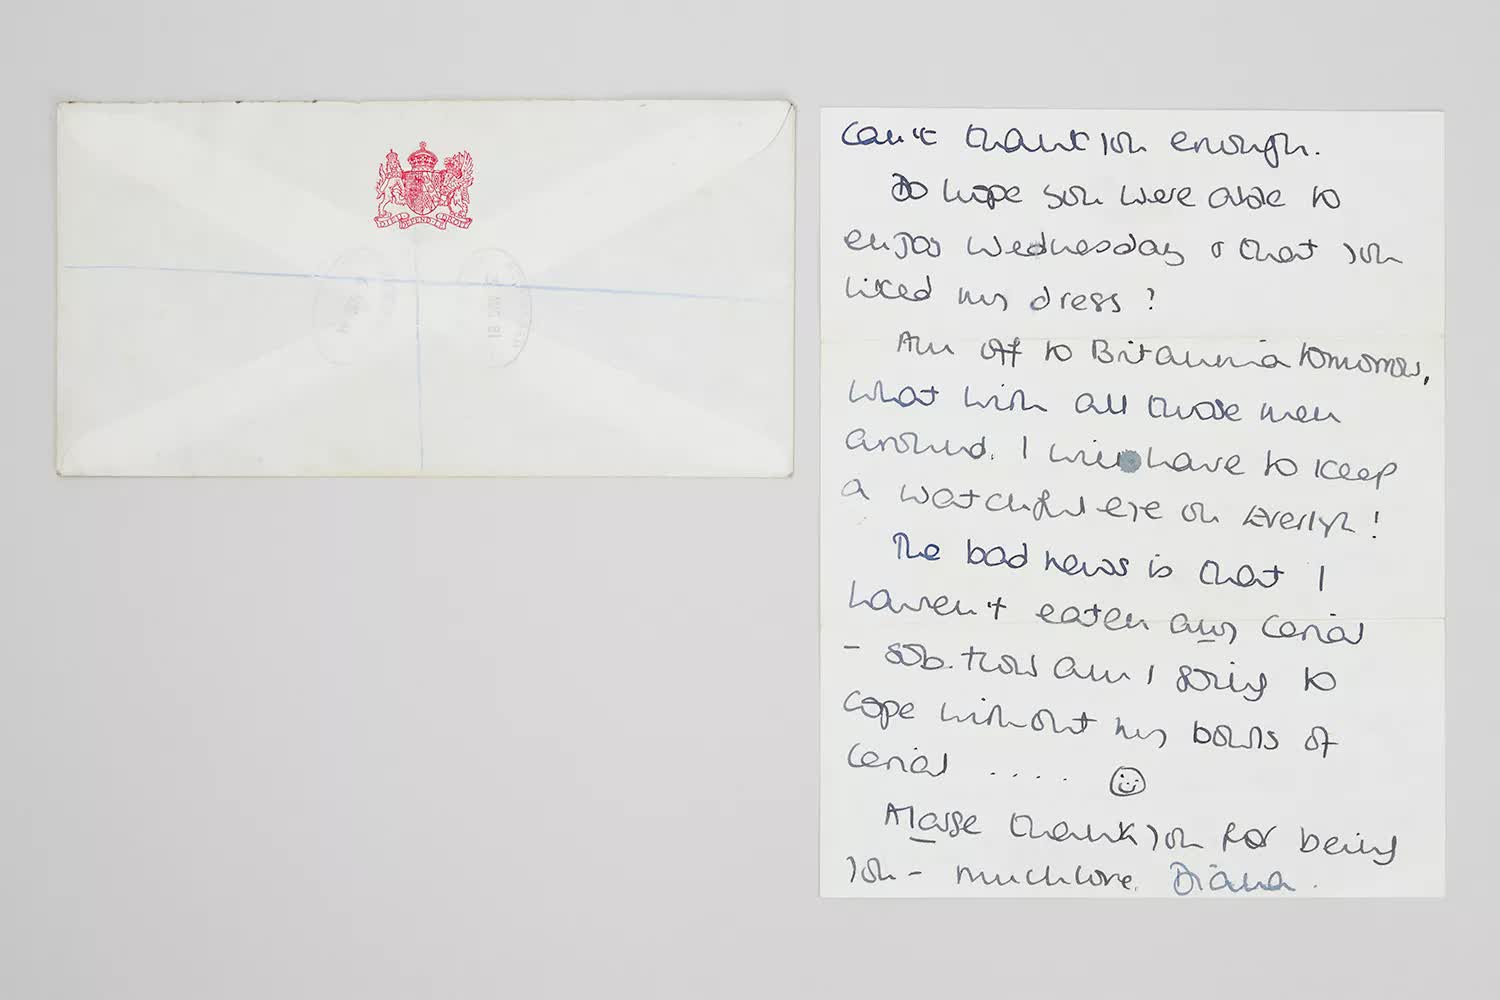 DIEU DEFEND LE DROIT
can't thank you enough.
Do hope you were able to
enjoy Wednesday & that you
liked my dress?
Am off to Britannia tomorrow,
what with all those men
around. I will have to keep
a watchful eye on Everlyn!
The bad news is that I
haven't eaten any cerial
- sob. How am I going to
cope without my bowls of
cerial ....
A large thank you for being
you - much love. Diana.